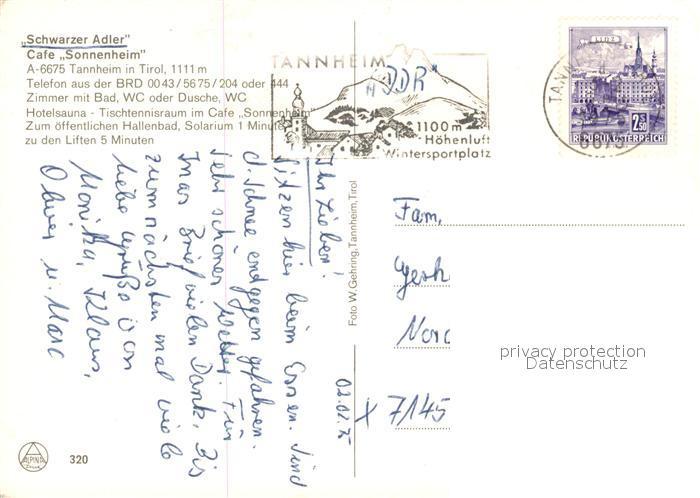 „Schwarzer Adler"
Cafe „Sonnenheim"
A-6675 Tannheim in Tirol, 1111 m
Telefon aus der BRD 0043/5675/204 oder 444
Zimmer mit Bad, WC oder Dusche, WC
Hotelsauna - Tischtennisraum im Cafe „Sonnenheim"
Zum öffentlichen Hallenbad, Solarium 1 Minute
zu den Liften 5 Minuten
TANNHEIM
"DDR"
1100m
Höhenluft
Wintersportplatz
LINZ
2.50
REPUBLIK ÖSTERREICH
Ihr Lieben!
Sitzen hier beim Essen. Sind
d. Schnee entgegen gefahren.
Sehr schönes Wetter. Für
Inas Brief vielen Dank. Bis
zum nächsten mal viele
liebe Grüße von
Monika, Klaus,
Oliver u. Marc
02.02.75
Foto W. Gehring, Tannheim, Tirol
Fam.
Gerh
Nord
x 7145
privacy protection
Datenschutz
ALPINA
320